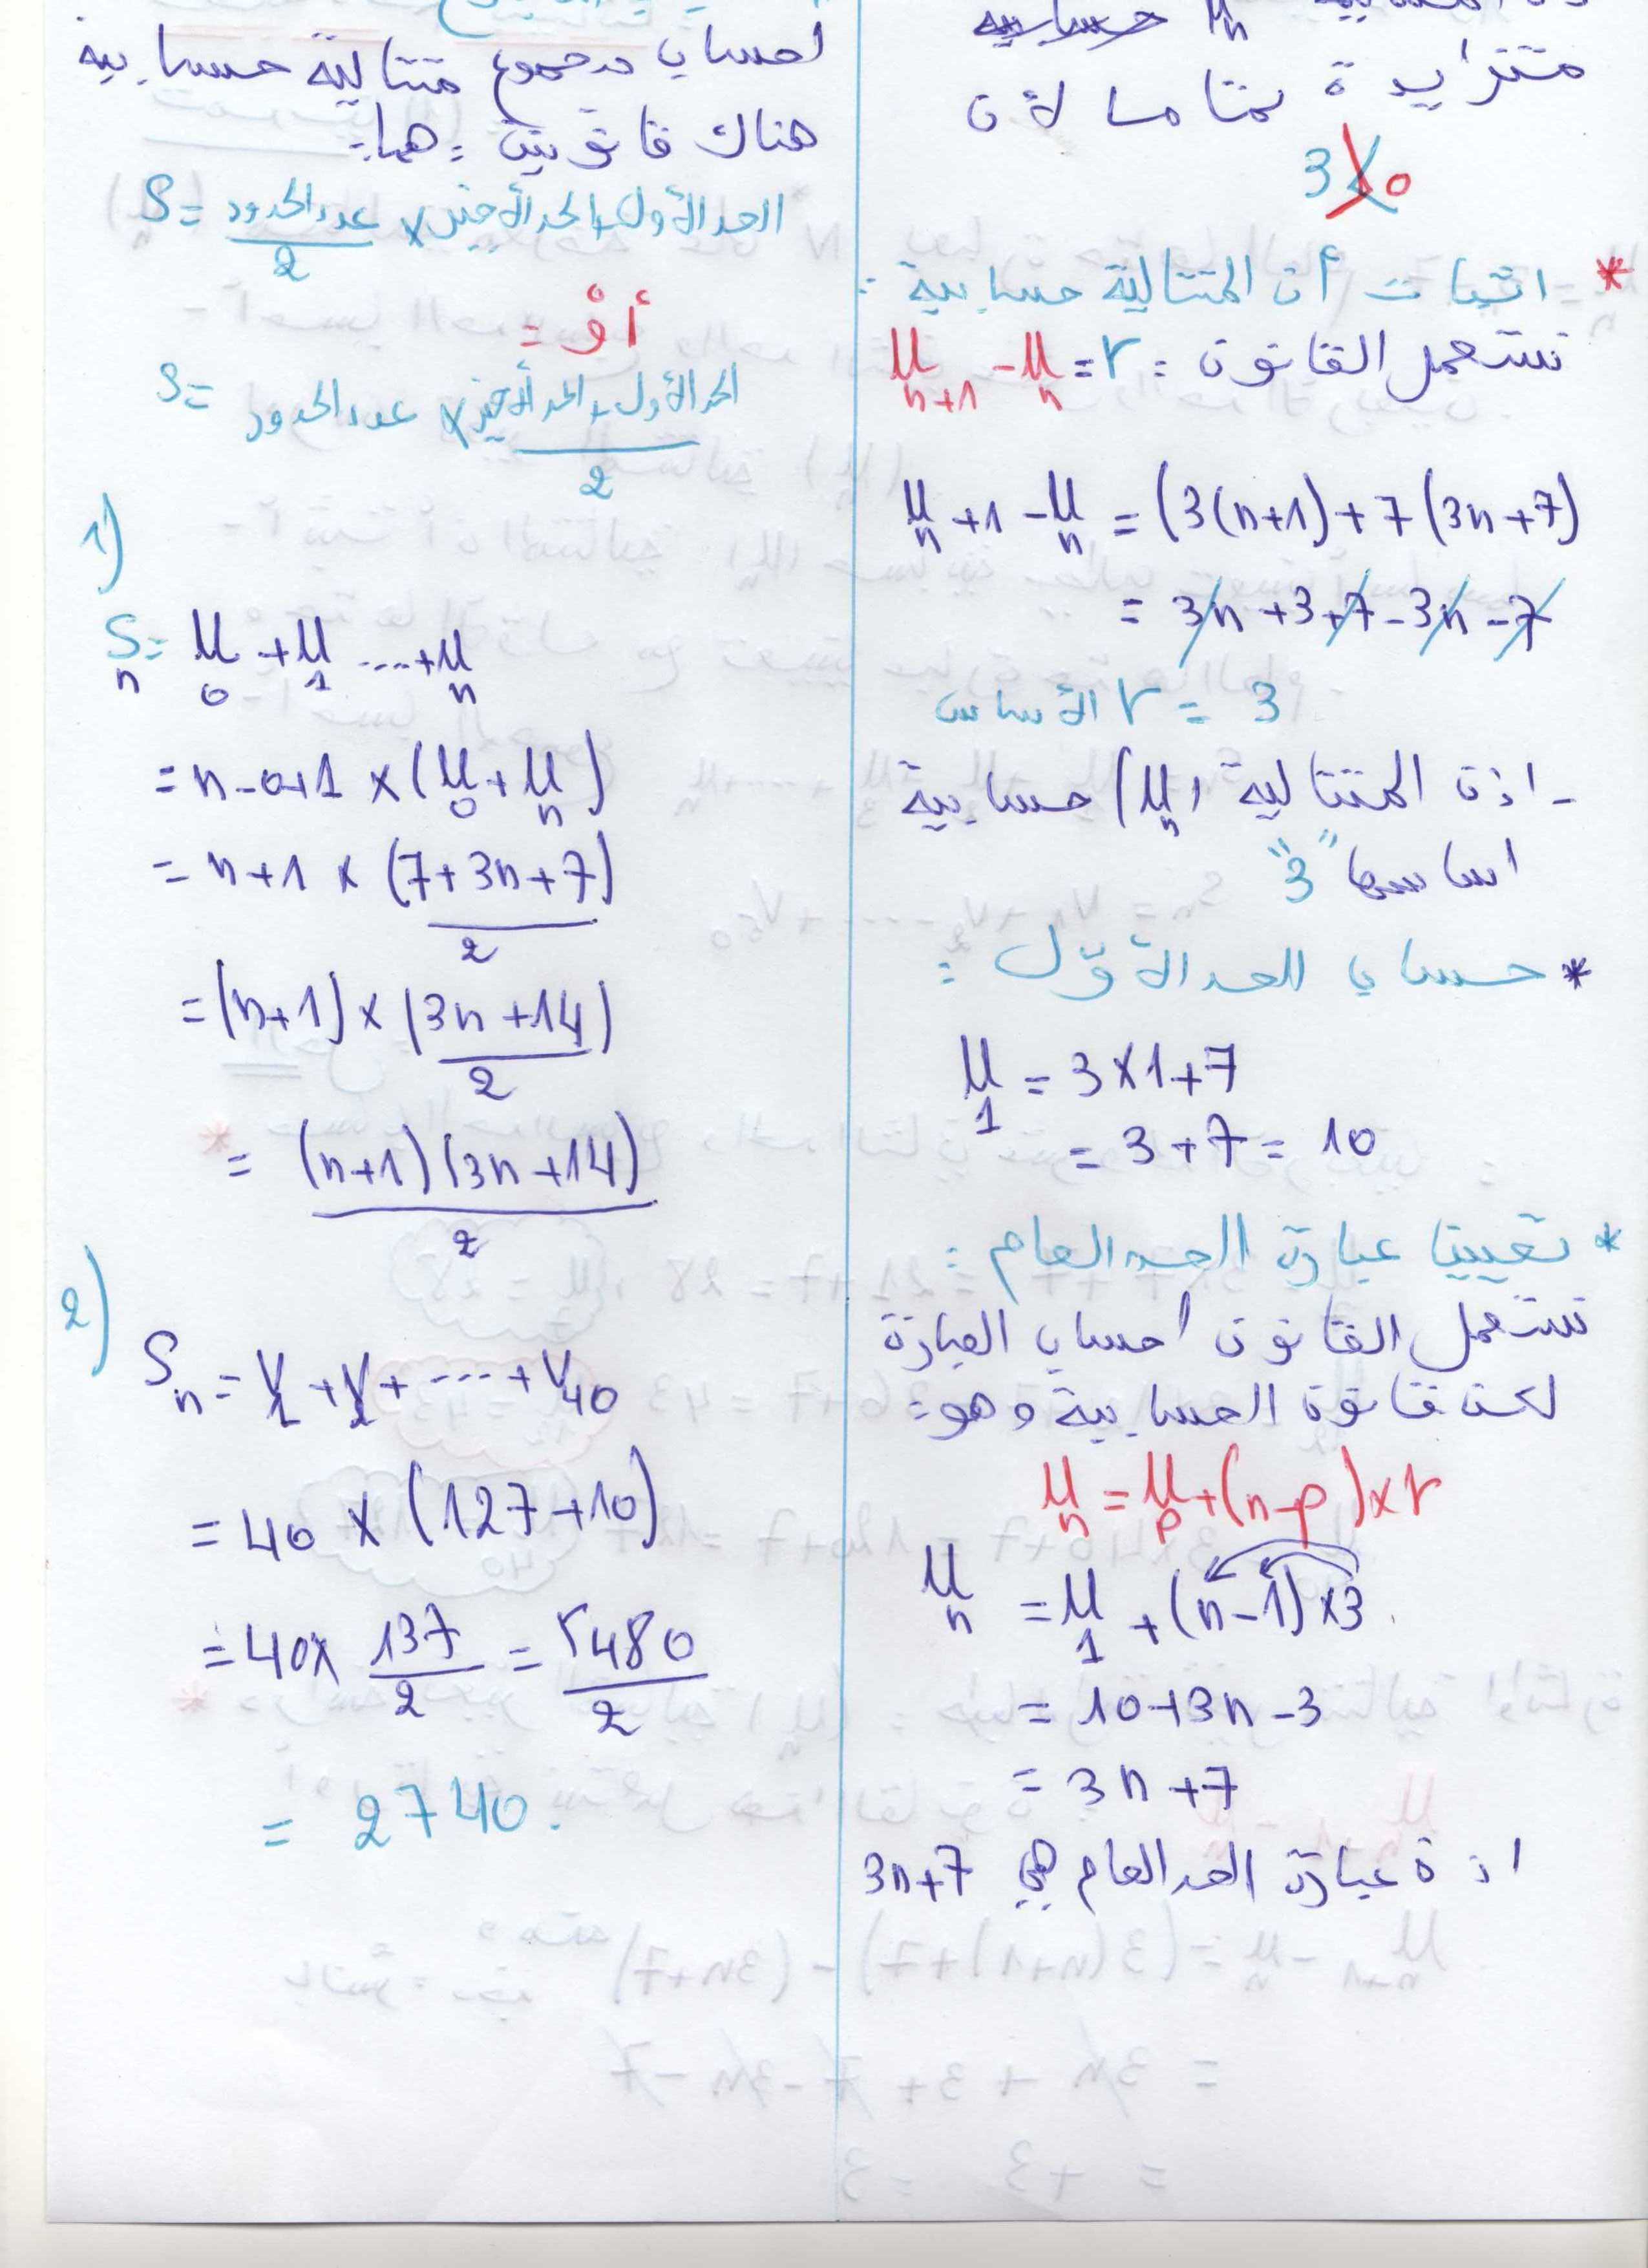 متزايدة تماما لأن
3 > 0
* اثبات أن المتتالية حسابية :
نستعمل القانون : U n+1 - U n = r
U n +1 - U n = (3(n+1)+7 (3n+7)
= 3n +3+7-3n-7
r = 3 الأساس
- اذن المتتالية (U n) حسابية
اساسها "3"
* حساب الحد الأول :
U 1 = 3×1+7
= 3+7 = 10
* تعيين عبارة الحد العام :
نستعمل القانون لحساب العبارة
لكن قانون الحسابية وهو :
U n = U p + (n-p)×r
U n = U 1 + (n-1)×3
= 10+3n-3
= 3n+7
اذن عبارة الحد العام هي 3n+7
لحساب مجموع متتالية حسابية
هناك قانونين : هما :
S = عدد الحدود / 2 × الحد الأول + الحد الأخير
أو :
S = عدد الحدود × الحد الأول + الحد الأخير / 2
1)
S n = U 0 + U 1 ....+ U n
= n-0+1 × (U 0 + U n)
= n+1 × (7+3n+7) / 2
= (n+1) × (3n+14) / 2
= (n+1)(3n+14) / 2
2)
S n = V 1 + V 2 + .... + V 40
= 40 × (127+10)
= 40× 137 / 2 = 5480 / 2
= 2740.